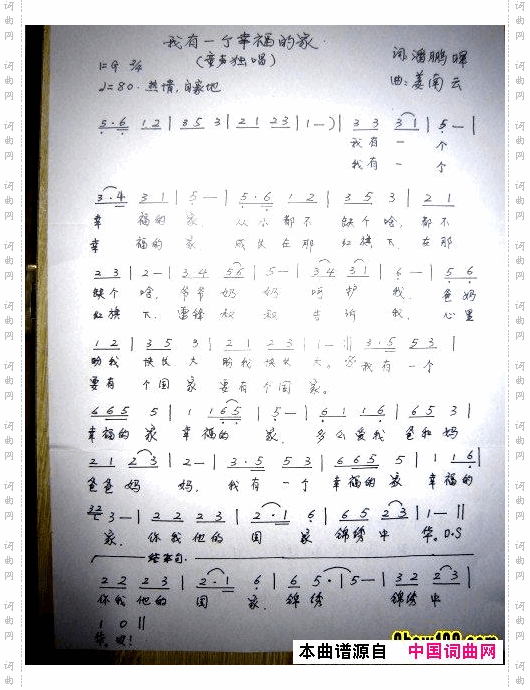 我有一个幸福的家.
(童声独唱)
1=G 2/4
词:潘鹏晖
曲:姜南云
♩=80. 热情,自豪地
5·6 1 2 | 3 5 3 | 2 1 2 3 | 1 — ) | 3 3 3 1 | 5 — |
我有 一 个
我有 一 个
3·4 3 1 | 5 — | 5·6 1 2 | 3 5 3 | 2 1
幸 福的 家. 从小都不 缺个啥, 都不
幸 福的 家 成长在那 红旗下. 在那
2 3 | 2 — | 3 4 5 6 | 5 — | 3 4 3 1 | 6 — | 5 6
缺个 啥, 爷爷奶 奶 呵护 我. 爸妈
红旗 下. 雷锋叔 叔 告诉 我, 心里
1 2 | 3 5 3 | 2 1 2 3 | 1 — :|| 3·5 5 3 |
盼我 快长大 盼我 快长 大。 我有 一个
要有 个国家 要有个国 家。
6 6 5 5 | 1 1 6 5 | 5 — | 6 1 1 6 | 6 5 3 |
幸福的 家 幸福的 家. 多么爱我 爸和妈
2 1 2 3 | 2 — | 3·5 5 3 | 6 6 5 5 | 1 1 6 |
爸爸妈 妈, 我有 一个 幸福的 家 幸福的
3 — | 2 2 2 3 | 2·1 6 | 6 5 2 3 | 1 — ||
家. 你我他的 国 家 锦绣中 华。D.S
结束句
2 2 2 3 | 2·1 6 | 6 5· | 5 — | 3 2 2 3 |
你我他的 国 家. 锦绣 锦绣中
1 0 ||
华.
本曲谱源自 中国词曲网
词曲网